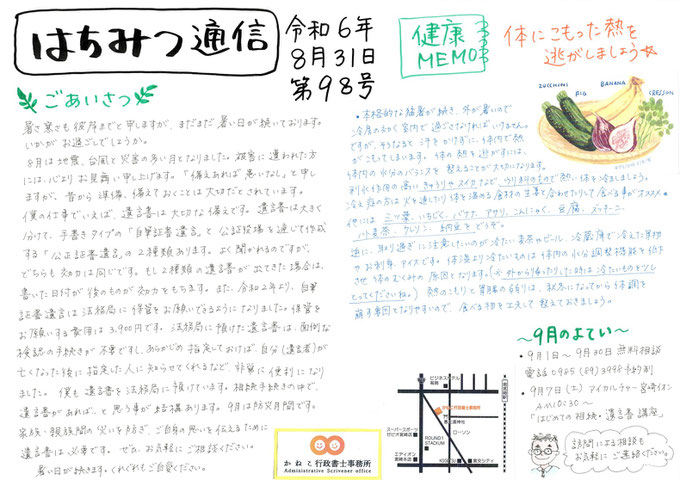 はちみつ通信
令和6年
8月31日
第98号
ごあいさつ
暑さ寒さも彼岸までと申しますが、まだまだ暑い日が続いております。
いかがお過ごしでしょうか。
8月は地震、台風と災害の多い月となりました。被害に遭われた方
には、心よりお見舞い申し上げます。「備えあれば患いなし」と申し
ますが、昔から準備、備えておくことは大切だとされています。
僕の仕事でいえば、遺言書は大切な備えです。遺言書は大きく
分けて、手書きタイプの「自筆証書遺言」と公証役場を通じて作成
する「公正証書遺言」の2種類あります。よく聞かれるのですが、
どちらも効力は同じです。もし2種類の遺言書が出てきた場合は、
書いた日付が後のものが効力をもちます。また、令和2年より、自筆
証書遺言は法務局に保管をお願いできるようになりました。保管を
お願いする費用は3,900円です。法務局に預けた遺言書は、面倒な
検認の手続きが不要ですし、あらかじめ指定しておけば、自分(遺言者)が
亡くなった後に指定した人に知らせてくれるなど、非常に便利になり
ました。僕も遺言書を法務局に預けています。相続手続きの中で、
遺言書があれば、と思う事が結構あります。9月は防災月間です。
家族・親族間の災いを防ぎ、ご自身の思いを伝えるために
遺言書は必要です。ぜひ、お気軽にご相談ください。
暑い日が続きます。くれぐれもご自愛ください。
かねこ行政書士事務所
Administrative Scrivener office
健康
MEMO
体にこもった熱を
逃がしましょう
ZUCCHINI
FIG
BANANA
CRESSON
・本格的な猛暑が続き、外が暑いので
冷房の効く室内で過ごさなければいけません。
ですが、そうなると汗をかけずに、体内で熱
がこもってしまいます。体の熱を逃がすには、
体内の水分のバランスを整えることが大切になります。
利水作用の高いきゅうりやスイカなど、ウリ科のもので熱い体を冷ましましょう。
冷え症の方は火を通したり体を温める食材の生姜と合わせたりして食べる事がオススメ。
他には、三つ葉、いちじく、バナナ、アサリ、こんにゃく、豆腐、ズッキーニ、
ハトムギ茶、クレソン、納豆をどうぞ。
逆に、取り過ぎに注意したいのが冷たい麦茶やビール、冷蔵庫で冷えた果物
やお刺身、アイスです。体温より冷たいものは体内の水分調整機能を低下
させ体のむくみの原因となります。(外から帰ったりした時は冷たいものをソレ
とってくださいね。)熱のこもりと胃腸の弱りは、秋冬になってから体調を
崩す要因となりやすいので、食べる物を工夫して整えておきましょう。
ビジネスホテル
かねこ行政書士事務所
スーパースポーツ
ゼビオ宮崎店
ローソン
ROUND1
STADIUM
エディオン
宮崎本店
東京シティ
～9月のよてい～
・9月1日～9月30日 無料相談
電話 0985(89)3998 予約制
・9月7日(土)アイカルチャー宮崎イオン
AM10:30～
「はじめての相続・遺言書講座」
訪問による相談も
お気軽にご連絡ください。